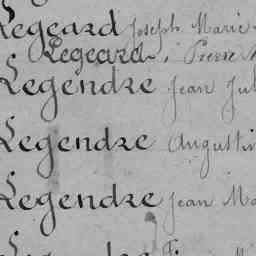 Legeard Joseph Marie
Legeard, Pierre
Legendre Jean Jul
Legendre Augustin
Legendre Jean Ma